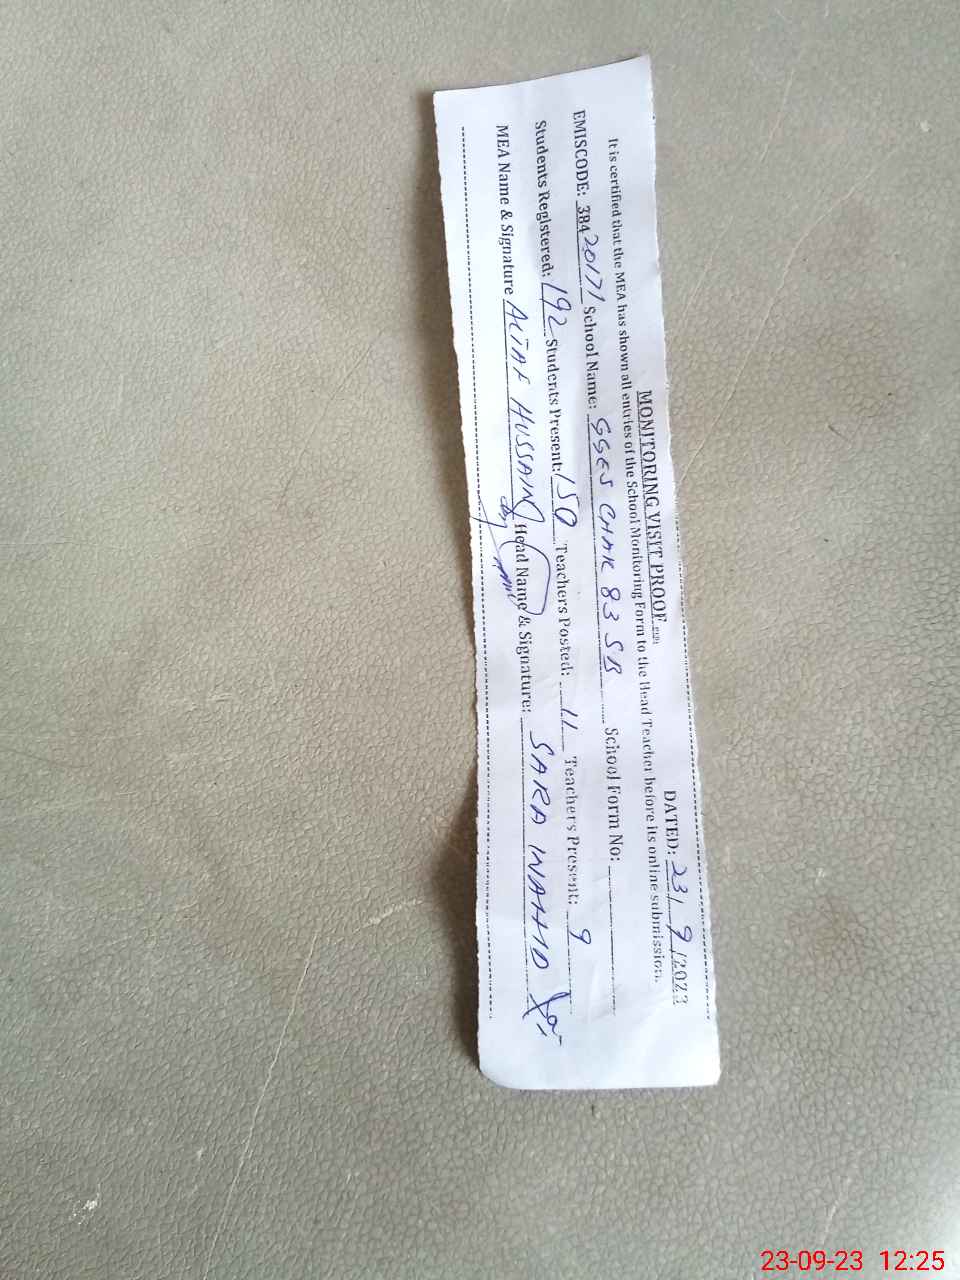 MONITORING VISIT PROOF
DATED: 23/9/2023
It is certified that the MEA has shown all entries of the School Monitoring Form to the Head Teacher before its online submission.
EMISCODE: 38420171 School Name: GGES CHAK 83 SB School Form No:
Students Registered: 192 Students Present: 150 Teachers Posted: 11 Teachers Present: 9
MEA Name & Signature ALTAF HUSSAIN Head Name & Signature: SARA WAHID
23-09-23 12:25